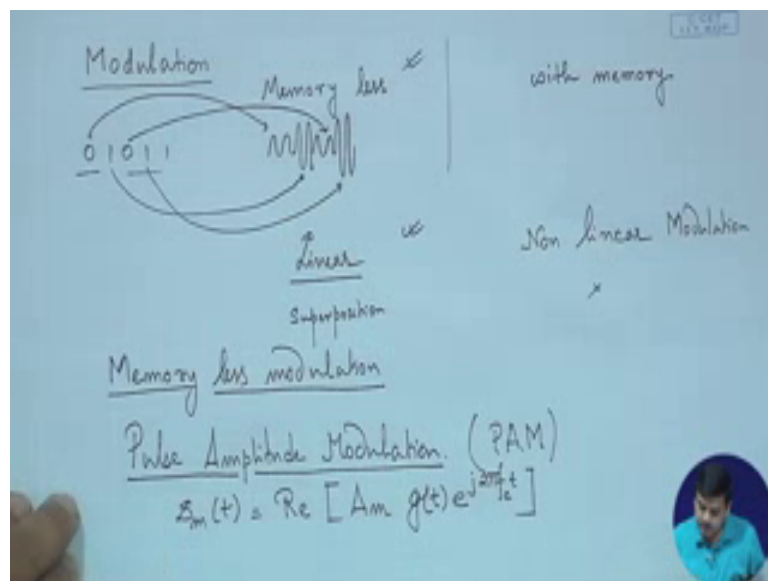 Modulation
Memory less
with memory
0 1 0 1 1
Linear
Non linear Modulation
Superposition
Memory less modulation
Pulse Amplitude Modulation. (PAM)
s_m(t) = Re [ Am g(t) e^{j2πf_c t} ]